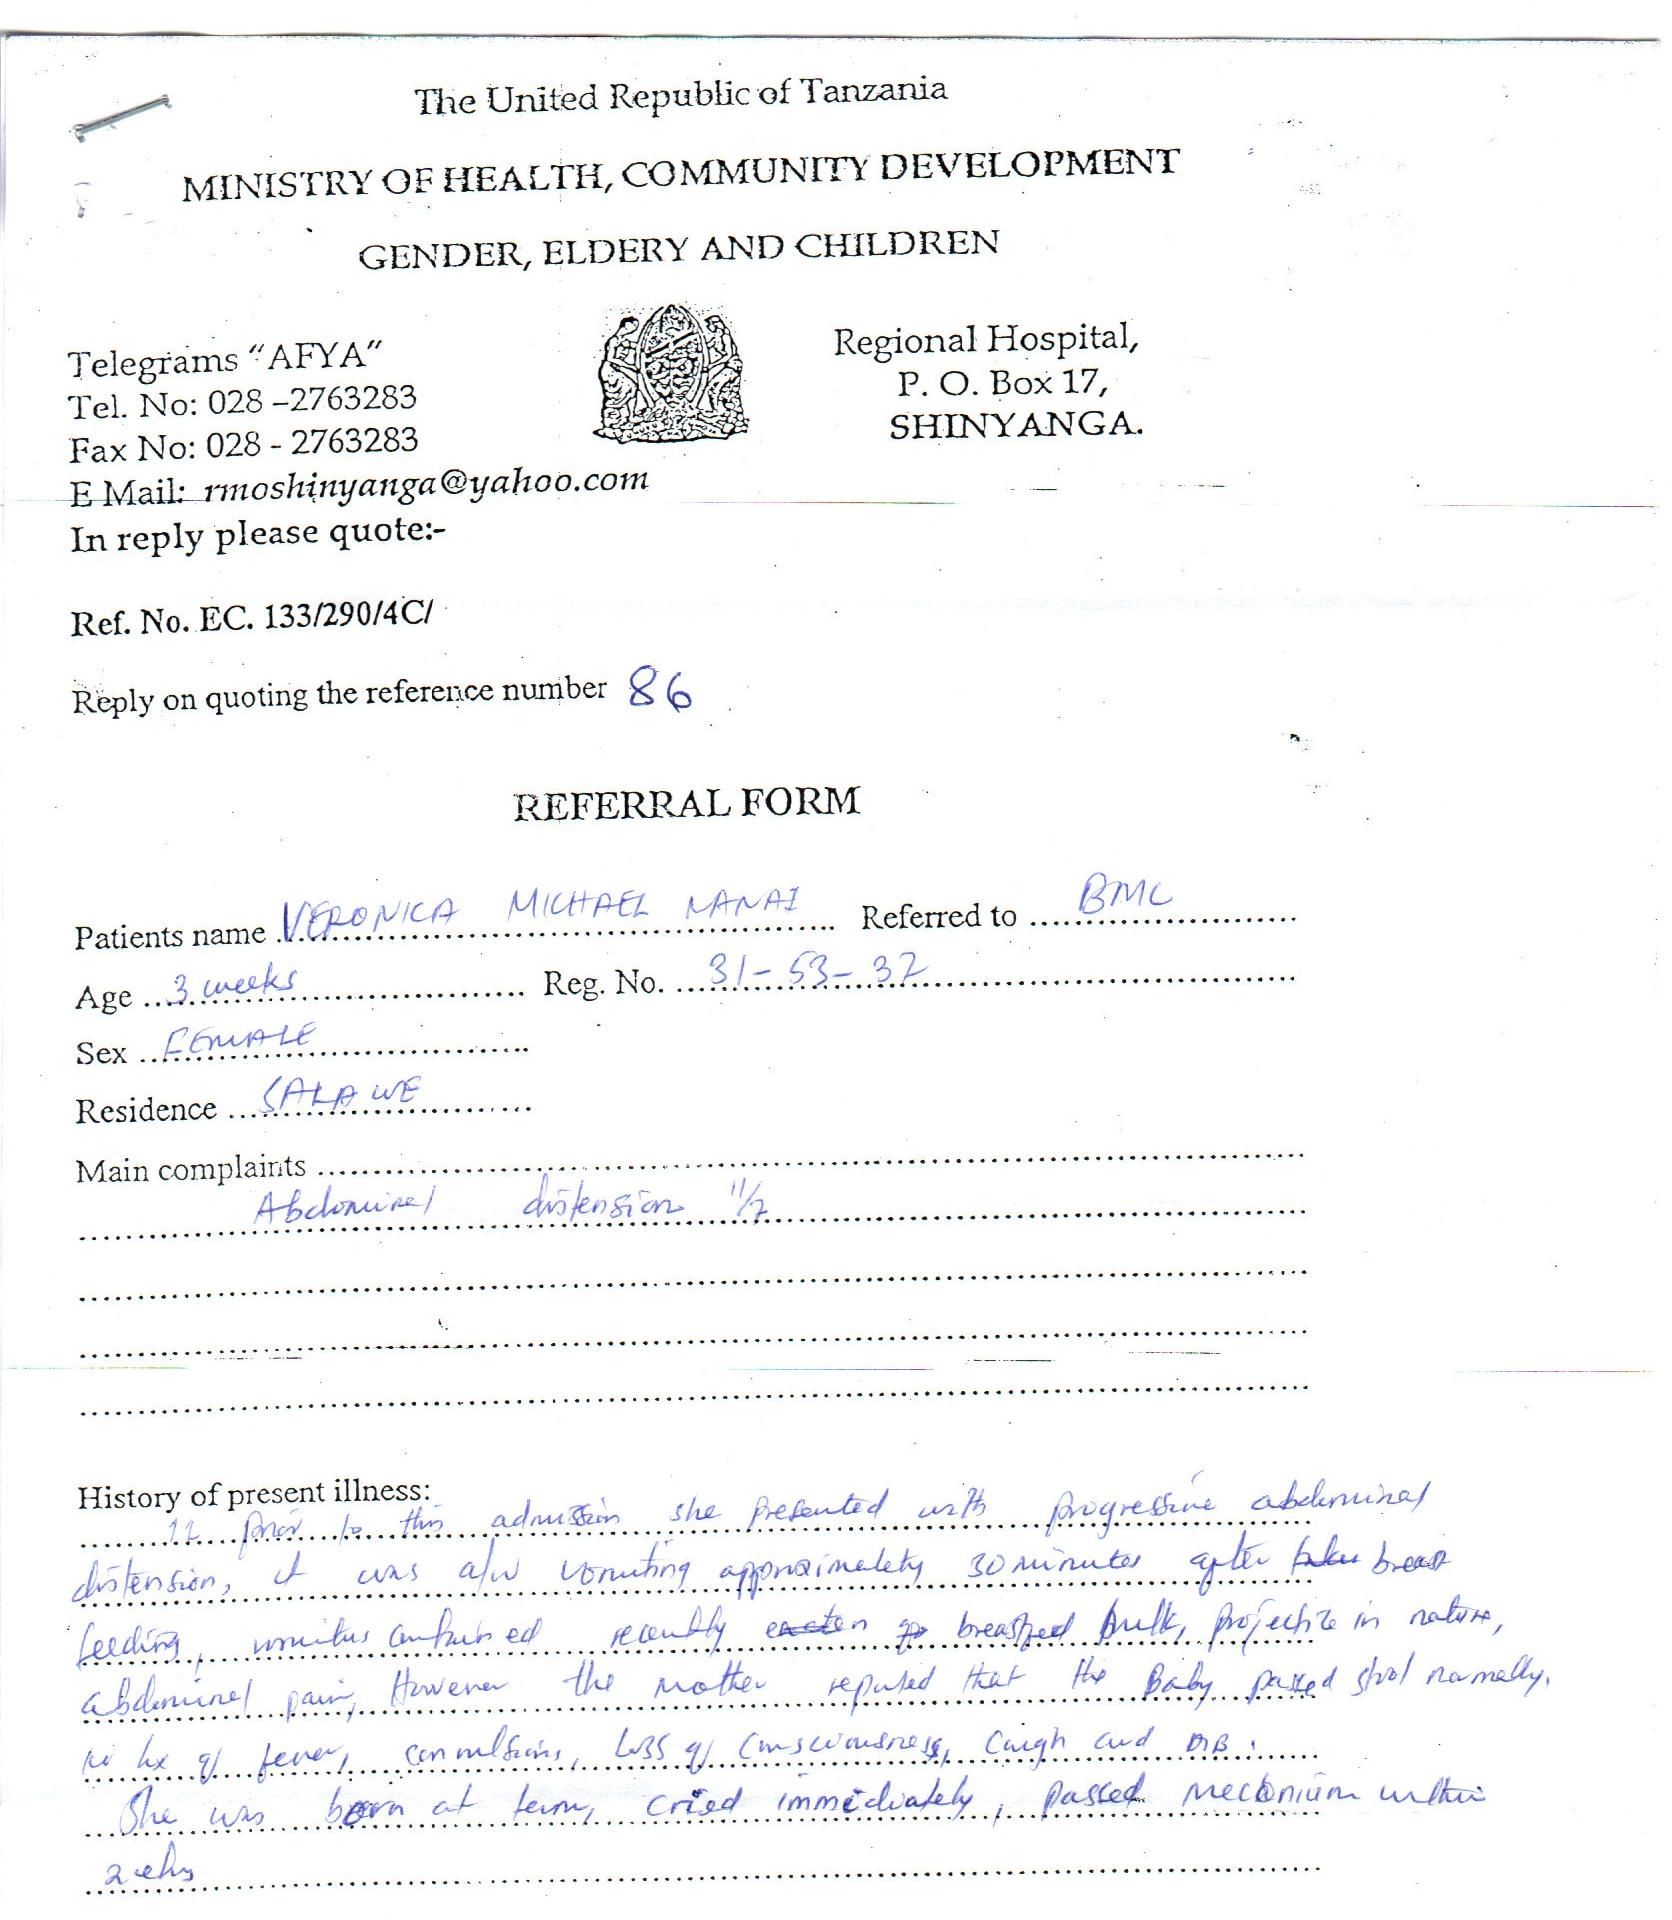 The United Republic of Tanzania
MINISTRY OF HEALTH, COMMUNITY DEVELOPMENT
GENDER, ELDERY AND CHILDREN
Telegrams "AFYA"
Tel. No: 028 –2763283
Fax No: 028 - 2763283
E Mail: rmoshinyanga@yahoo.com
In reply please quote:-
Regional Hospital,
P. O. Box 17,
SHINYANGA.
Ref. No. EC. 133/290/4C/
Reply on quoting the reference number 86
REFERRAL FORM
Patients name VERONICA MICHAEL NANAI Referred to BMC
Age 3 weeks Reg. No. 31-53-37
Sex FEMALE
Residence SALAWE
Main complaints
Abdominal distension 11/7
History of present illness:
prior to this admission she presented with progressive abdominal
distension, it was a/w vomiting approximately 30 minutes after breast
feeding, vomitus contained recently breastfed milk, projectile in nature,
abdominal pain, However the mother reported that the Baby passed stool normally.
no hx of fever, convulsions, loss of consciousness, cough and DIB.
She was born at term, cried immediately, passed meconium within